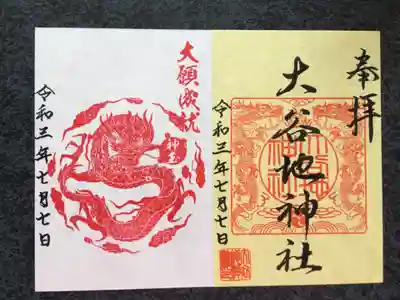 奉拝
大谷地神社
令和三年七月七日
大願成就
神玉
令和三年七月七日